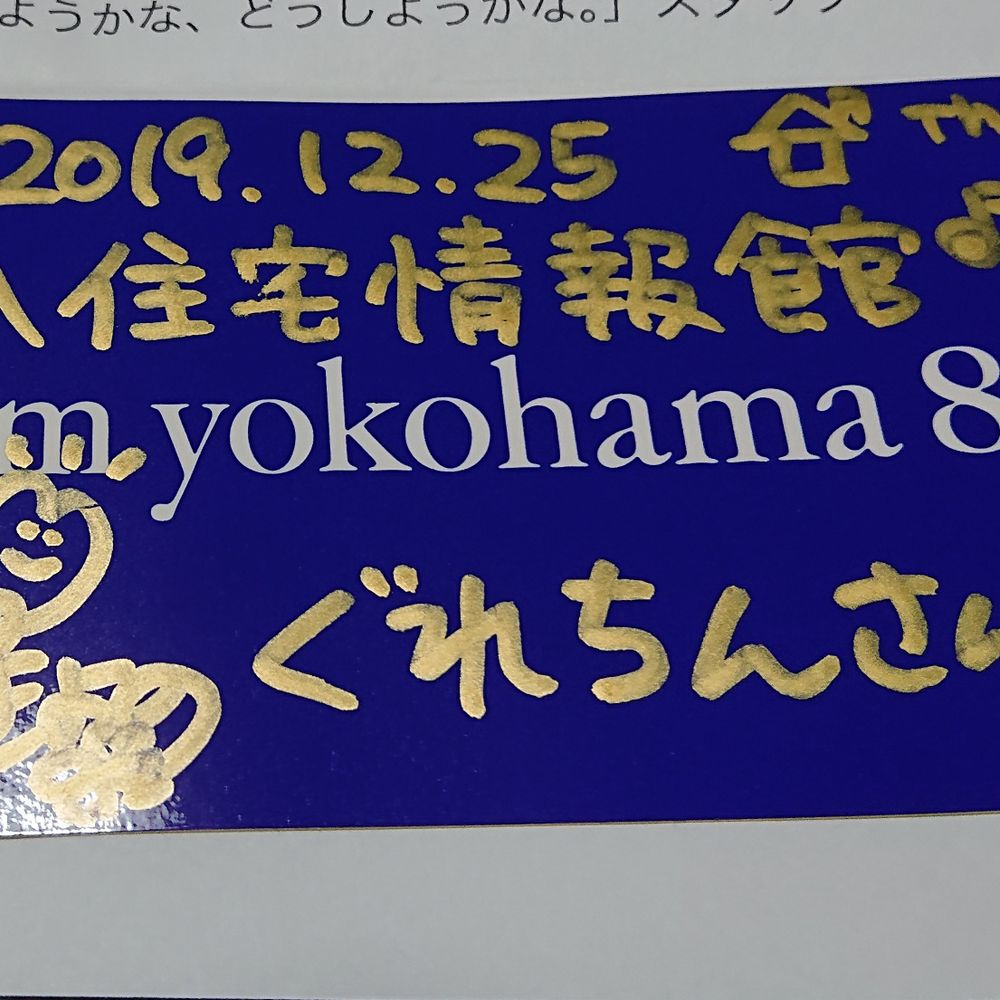 ようかな、どうしようかな。」スタッフ
2019.12.25
住宅情報館
m yokohama 8
ぐれちんさん